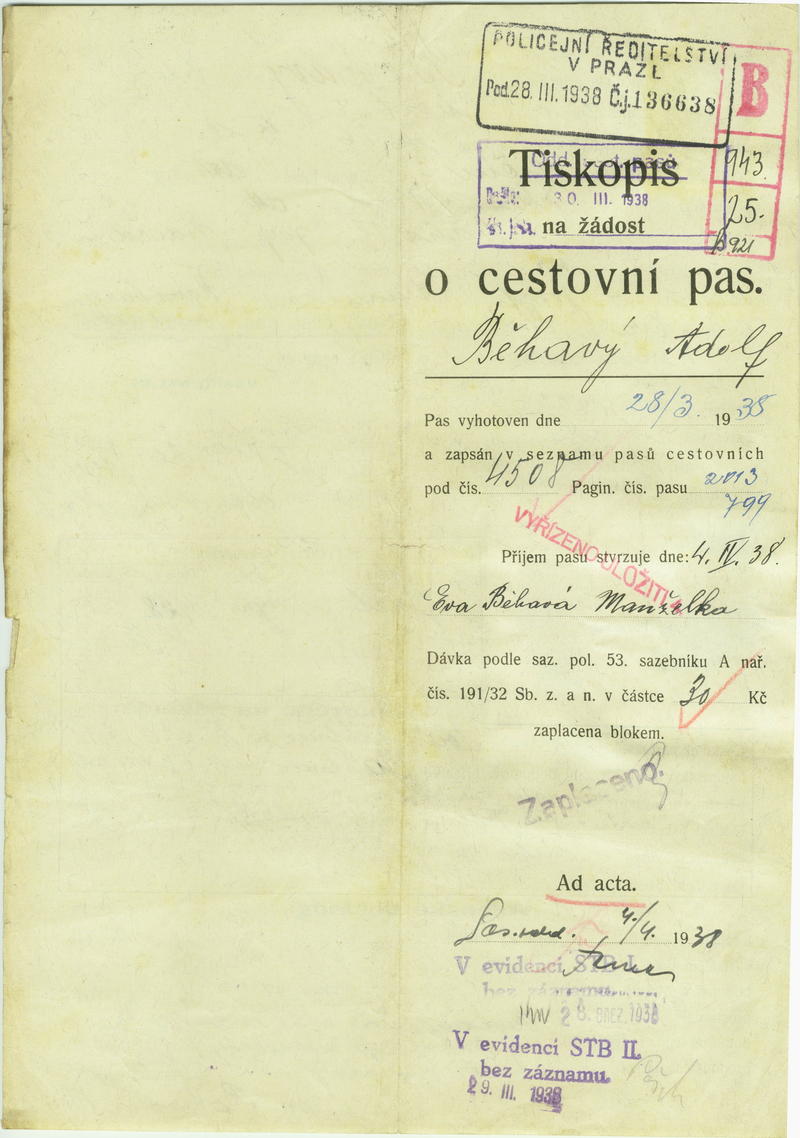 POLICEJNÍ ŘEDITELSTVÍ
V PRAZE
Pod. 28. III. 1938 Č.j. 136638
B
943
25.
B 921
Tiskopis
30. III. 1938
na žádost
o cestovní pas.
Běhavý Adolf
Pas vyhotoven dne 28/3. 1938
a zapsán v seznamu pasů cestovních
pod čís. 4508 Pagin. čís. pasu 2013
799
VYŘÍZENO ULOŽITI
Příjem pasu stvrzuje dne: 4. IV. 38.
Eva Běhavá Manželka
Dávka podle saz. pol. 53. sazebníku A nař.
čís. 191/32 Sb. z. a n. v částce 30 Kč
zaplacena blokem.
Zaplaceno.
Ad acta.
4/4. 1938
V evidenci STB I.
bez záznamu.
28. BŘEZ. 1938
V evidenci STB II.
bez záznamu.
29. III. 1938